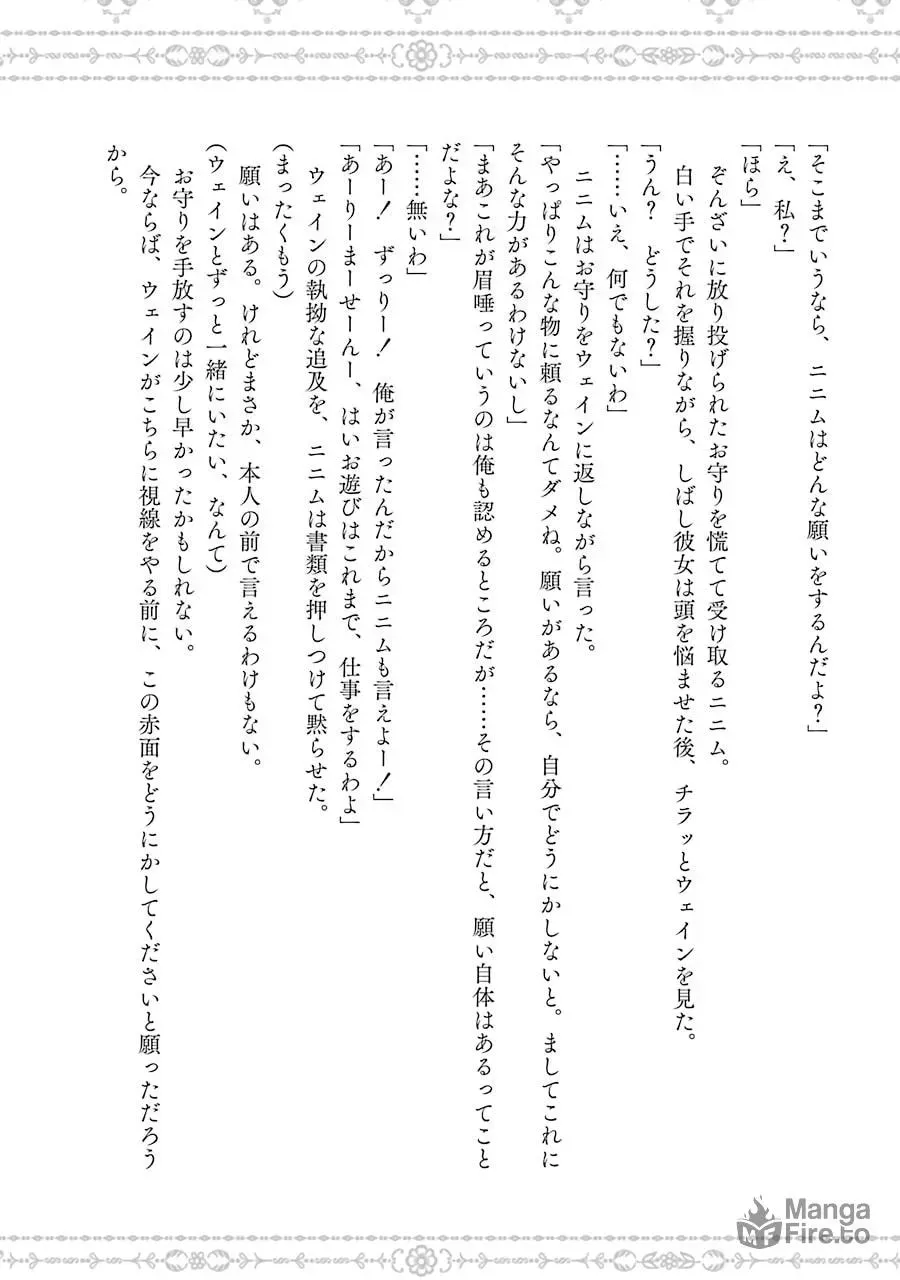 「そこまでいうなら、ニニムはどんな願いをするんだよ？」
「え、私？」
「ほら」
ぞんざいに放り投げられたお守りを慌てて受け取るニニム。
白い手でそれを握りながら、しばし彼女は頭を悩ませた後、チラッとウェインを見た。
「うん？　どうした？」
「……いえ、何でもないわ」
ニニムはお守りをウェインに返しながら言った。
「やっぱりこんな物に頼るなんてダメね。願いがあるなら、自分でどうにかしないと。ましてこれに
そんな力があるわけないし」
「まあこれが眉唾っていうのは俺も認めるところだが……その言い方だと、願い自体はあるってこと
だよな？」
「……無いわ」
「あー！　ずっりー！　俺が言ったんだからニニムも言えよー！」
「あーりーまーせーんー、はいお遊びはこれまで、仕事をするわよ」
ウェインの執拗な追及を、ニニムは書類を押しつけて黙らせた。
（まったくもう）
願いはある。けれどまさか、本人の前で言えるわけもない。
（ウェインとずっと一緒にいたい、なんて）
お守りを手放すのは少し早かったかもしれない。
今ならば、ウェインがこちらに視線をやる前に、この赤面をどうにかしてくださいと願っただろう
から。
Manga
Fire.to
MF